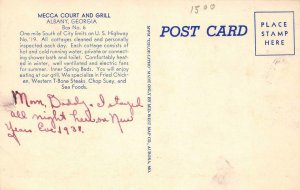 MECCA COURT AND GRILL
ALBANY, GEORGIA
Box No. 6
One mile South of City limits on U. S. Highway
No. 19. All cottages cleaned and personally
inspected each day. Each cottage consists of
hot and cold running water, private or connect-
ing shower bath and toilet. Comfortably heat-
ed in winter, well ventilated and electric fans
for summer. Inner Spring Beds. You will enjoy
eating at our grill. We specialize in Fried Chick-
en, Western T-Bone Steaks, Chop Suey, and
Sea Foods.
1500
POST CARD
PLACE
STAMP
HERE
Mom, Daddy & I stayed
all night here on New
Years Eve 1938.